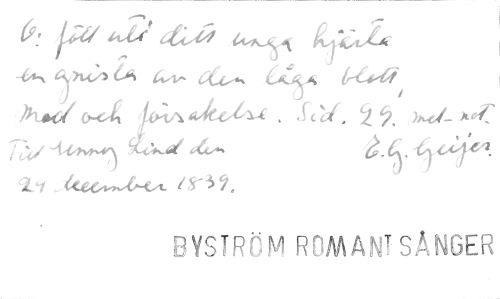 O: fött uti ditt unga hjärta
en gnista av den låga blott,
Mod och försakelse. Sid. 29. met-not.
Till Jenny Lind den E.G. Geijer.
24 december 1839.
BYSTRÖM ROMANT SÅNGER